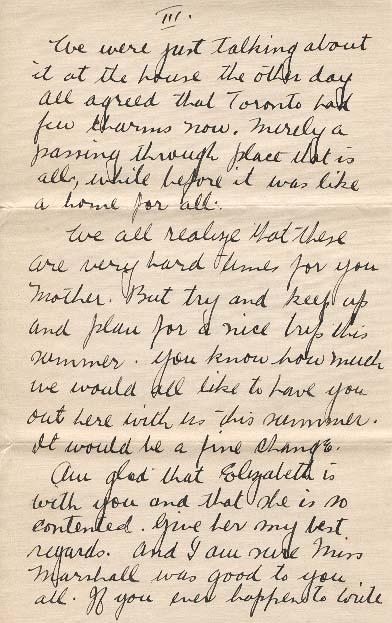 III.
We were just talking about
it at the house the other day
all agreed that Toronto had
few charms now. Merely a
passing through place that is
all, while before it was like
a home for all.
We all realize that these
are very hard times for you
Mother. But try and keep up
and plan for a nice trip this
summer. You know how much
we would all like to have you
out here with us this summer.
It would be a fine change.
Am glad that Elizabeth is
with you and that she is so
contented. Give her my best
regards. And I am sure Miss
Marshall was good to you
all. If you ever happen to write